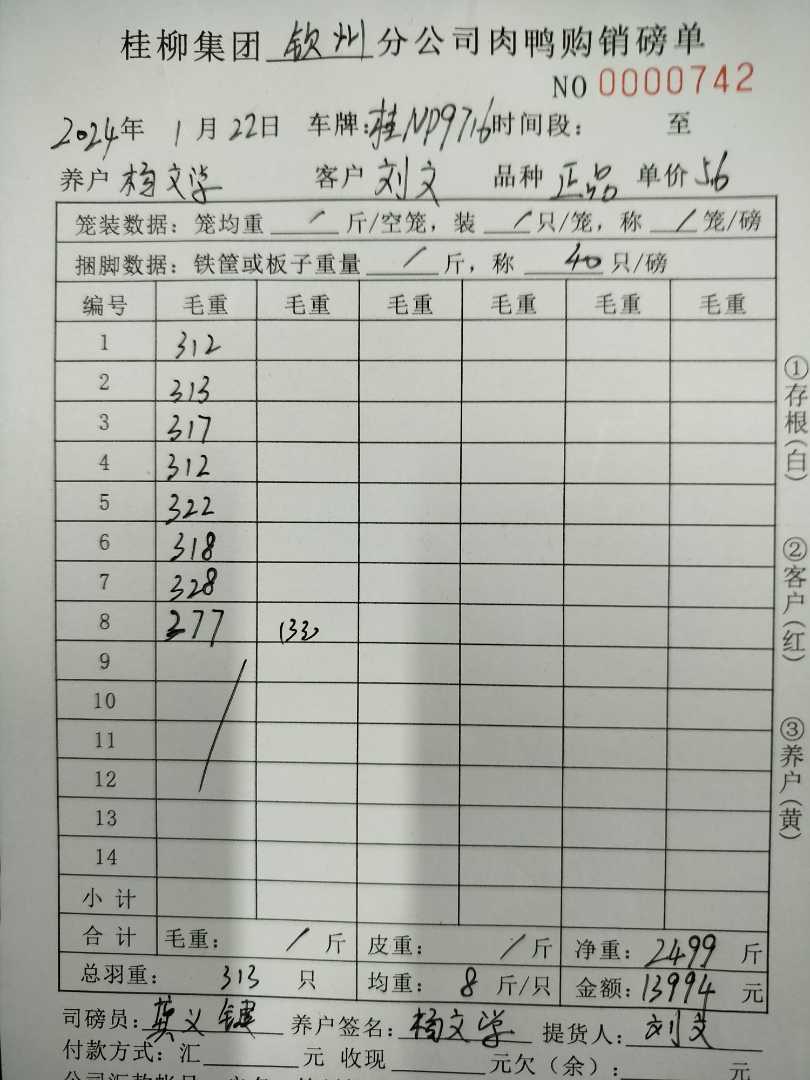 桂柳集团 钦州 分公司肉鸭购销磅单
NO 0000742
2024年 1月22日 车牌:桂NP9716 时间段: 至
养户 杨文学 客户 刘文 品种 正品 单价 5.6
笼装数据: 笼均重 / 斤/空笼, 装 / 只/笼, 称 / 笼/磅
捆脚数据: 铁筐或板子重量 / 斤, 称 40 只/磅
编号 毛重 毛重 毛重 毛重 毛重 毛重
1 312
2 313
3 317
4 312
5 322
6 318
7 328
8 277 (33)
9
10
11
12
13
14
小计
合计 毛重: / 斤 皮重: / 斤 净重: 2499 斤
总羽重: 313 只 均重: 8 斤/只 金额: 13994 元
司磅员: 莫义键 养户签名: 杨文学 提货人: 刘文
付款方式: 汇 元 收现 元欠(余): 元
①存根(白)
②客户(红)
③养户(黄)